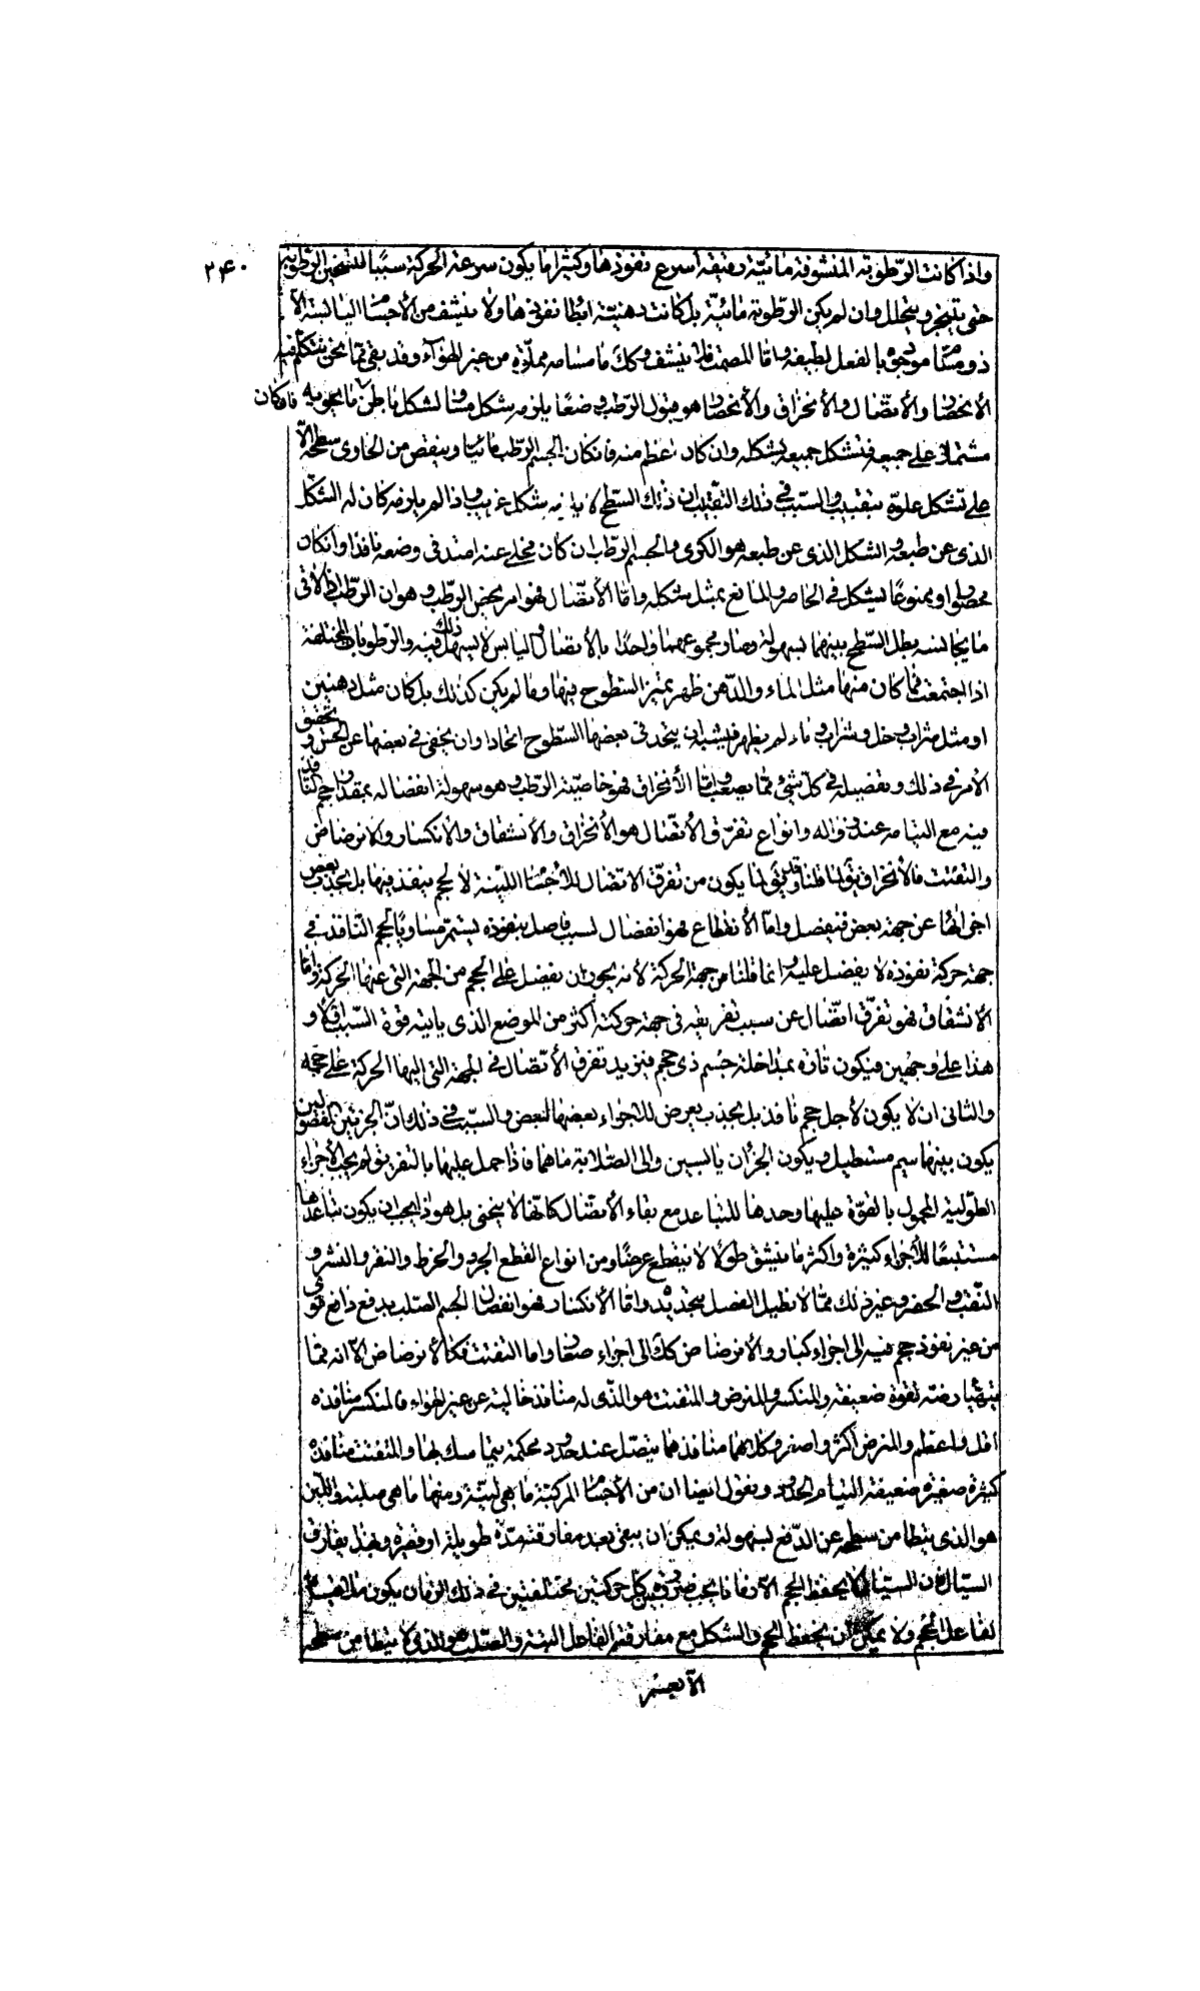 ۲۴۰
واذا كانت الرّطوبة المنشوفة مائيّة رقيقة اسرع نفوذها وكثيرا ما يكون سرعة الحركة سببًا للتسخين الرّطوبة
حتى يتبخّر ويتحلل وان لم يكن الرطوبة مائيّة بل كانت دهنيّة ابطا نفوذها ولا ينشف من الأجسام اليابسة الّا
ذو مسام موجودة بالفعل لطيفة واما المصمت فلا ينشف وكك ما مسامه مملوّة من غير الهواء وقد بقى ممّا نحن نتكلّم فيه
الانحصار والأتصال والأنخراق والأنحصار هو قبول الرّطب وضعًا يلزمه شكل مساو لشكل باطن ما يحويه فان كان
مشتملا على جميعه فتشكل جميعه بشكله وان كان اعظم منه فان كان الجسم الرّطب مائيا وينقص من الحاوى سطحه الّا
على تشكل علوّه بتقبيب والسّبب فى ذلك التقبيب ان ذلك السّطح لا يلزمه شكل غريب واذا لم يلزمه كان له الشّكل
الذى عن طبعه والشكل الذى عن طبعه هو الكرى والجسم الرطب ان كان مخلى عنه امتد فى وضعه نافذا وان كان
محصورا وممنوعًا تشكل فى الحاصر والمانع بمثل شكله وامّا الأتّصال فهو امر يخصّ الرّطب وهو ان الرّطب اذا لاقى
ما يجانسه بطل السّطح بينهما بسهولة وصار مجموعهما واحدًا بالأتصال واليابس لا يسهل ذلك فيه والرّطوبات المختلفة
اذا اجتمعت فما كان منها مثل الماء والدّهن ظهر تميّز السّطوح فيها وما لم يكن كذلك بل كان مثل دهنين
او مثل شراب وخل وشراب وماء لم يظهر فيشبه ان يتحد فى بعضها السّطوح اتحادا وان يخفى فى بعضها عن الحسّ وتحقيق
الأمر فى ذلك وتفصيله فى كلّ شئ ممّا يصعب وامّا الأنخراق فهو خاصيّة الرّطب وهو سهولة انفصاله بمقدار حجم النّافذ
فيه مع التيامه عند زواله وانواع تفرّق الأتّصال هو الأنخراق والأنشقاق والأنكسار والأنرضاض
والتفتّت فالأنخراق يقال لما قلنا وقد يقال لما يكون من تفرّق الاتصال للأجسام الليّنة لا لحجم ينفذ فيها بل لجذب بعض
اجزائها عن جهة بعض فتنفصل وامّا الأنقطاع فهو انفصال لسبب فاصل بنفوذه يستمر مساويًا لحجم النّافذ فى
جهة حركة نفوذه لا يفضل عليه وانما قلنا من جهة الحركة لأنه يجوز ان يفضل على الحجم من الجهة التى عنها الحركة وامّا
الأنشقاق فهو تفرّق اتّصال عن سبب تفريقه فى جهة حركته اكثر من الموضع الذى ياتيه قوة السّبب اوّلا و
هذا على وجهين فيكون تارة بمداخلة جسم ذى حجم فيزيد تفرق الأتّصال فى الجهة التى اليها الحركة على حجمه
والثانى ان لا يكون لأجل حجم نافذ بل لجذب يعرض للاجزاء بعضها لبعض والسّبب فى ذلك انّ الجزئين المفصولين
يكون بينهما جسم مستطيل ويكون الجزآن يابسين والى الصّلابة ما هما فاذا حمل عليها بالتفريق لم يجب الأجزاء
الطّولية المحمول بالقوّة عليها وحدها للتباعد مع بقاء الأتصال كانّها لا ينحنى بل هو اذا يجب ان يكون تباعدها
مستتبعًا للأجزاء كثيرة واكثر ما ينشق طولًا لا ينقطع عرضًا ومن انواع القطع الجرد والخرط والنقر والنشر و
الثّقب والحفر وغير ذلك ممّا لا نطيل الفصل بتحديده وامّا الأنكسار فهو انفصال الجسم الصّلب بدفع دافع قوى
من غير نفوذ حجم فيه الى اجزاء كبار والأنرضاض كك الى اجزاء صغار واما التفتّت فكالأنرضاض الّا انه ممّا
يتهيّأ رضّه بقوة ضعيفة والمنكسر والمنرضّ والمتفتت هو الذّى له منافذ خالية عن غير الهواء فالمنكسر منافذه
اقل واعظم والمنرضّ اكثر واصغر وكلاهما منافذهما يتصل عند حدود محكمة يتماسك بها والمتفتت منافذه
كثيرة صغيرة ضعيفة التيام الحدود ونقول ايضا ان من الأجسام المركبة ما هى ليّنة ومنها ما هى صلبة واللّين
هو الذى يتطامن سطحه عن الدّفع بسهولة ويمكن ان يبقى بعد مفارقته مدّة طويلة او قصيرة وبهذا يفارق
السيّال فان السيّال لا يحفظ الحجم الّا زمانا يجب ضرورة بين كل حركتين مختلفتين فى ذلك الزمان يكون ملاقيًا
لفاعل الحجم ولا يمكن ان يحفظ الحجم والشكل مع مفارقة الفاعل البتة والصّلب هو الذى لا يتطامن سطحه
الّا بعسر